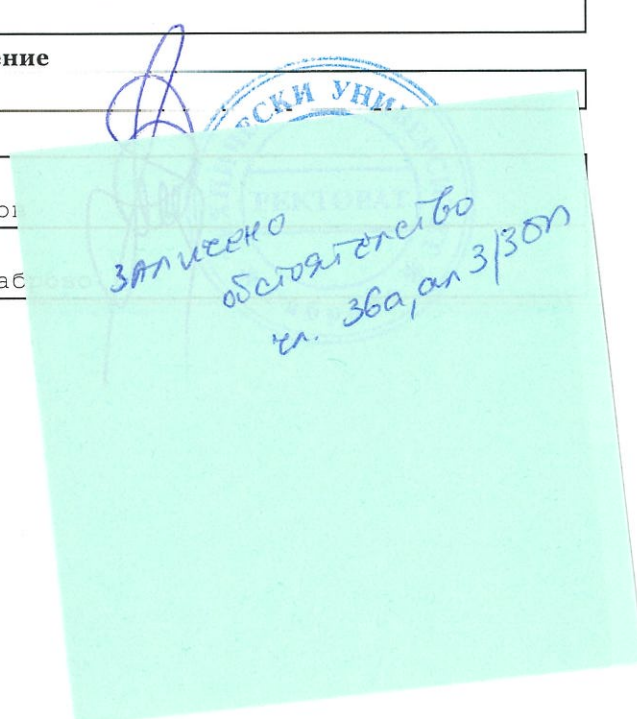 ение
СКИ УНИВЕРС
РЕКТОРАТ
аброво
заличено
обстоятелство
чл. 36а, ал 3/ЗОП